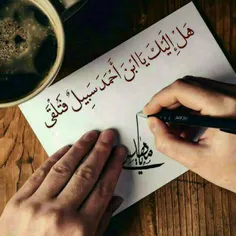 هَل إِلَيْكَ يَا ابْنَ أَحْمَدَ سَبِيلٌ فَتُلْقَى